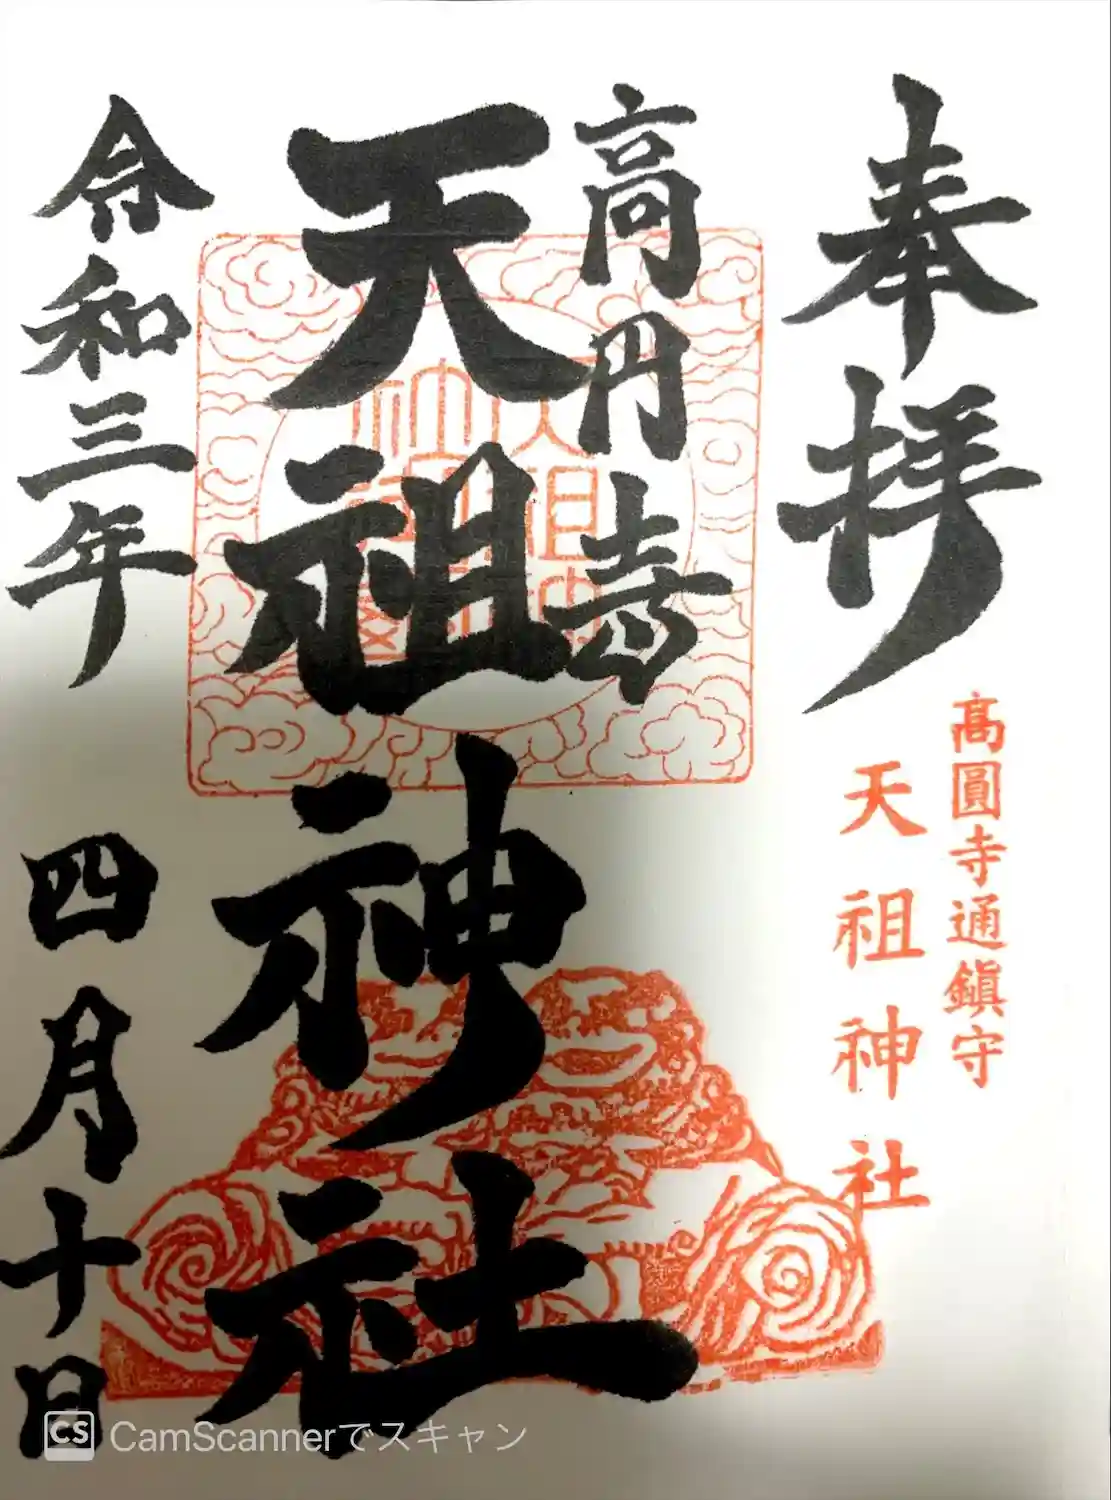 奉拝
髙圓寺通鎭守
天祖神社
高円寺
天祖神社
令和三年
四月十日
CS CamScannerでスキャン